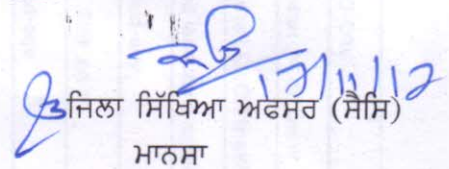 17/11/12
ਜਿਲਾ ਸਿੱਖਿਆ ਅਫਸਰ (ਸੈਸਿ)
ਮਾਨਸਾ